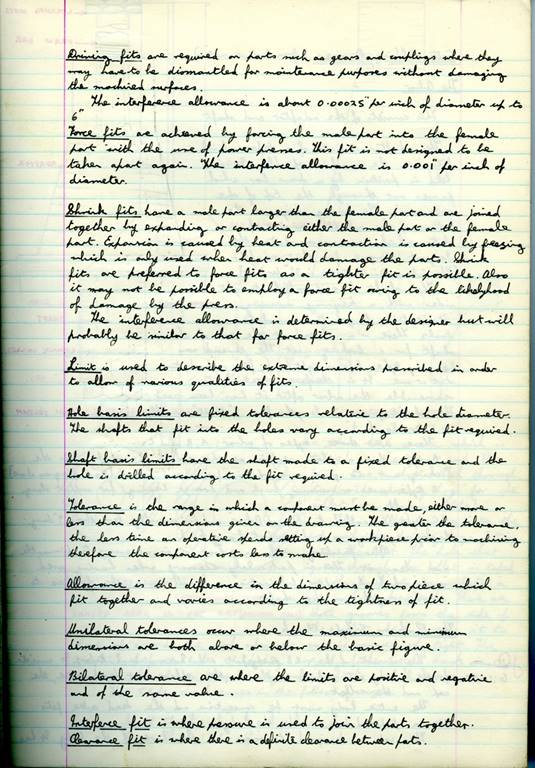 Driving fits are required on parts such as gears and couplings where they
may have to be dismantled for maintenance purposes without damaging
the machined surfaces.
The interference allowance is about 0.00025" per inch of diameter up to
6"
Force fits are achieved by forcing the male part into the female
part with the use of power presses. This fit is not designed to be
taken apart again. The interfence allowance is 0.001" per inch of
diameter.
Shrink fits have a male part larger than the female part and are joined
together by expanding or contracting either the male part or the female
part. Expansion is caused by heat and contraction is caused by freezing
which is only used when heat would damage the parts. Shrink
fits are preferred to force fits as a tighter fit is possible. Also
it may not be possible to employ a force fit owing to the likelyhood
of damage by the press.
The interference allowance is determined by the designer but will
probably be similar to that for force fits.
Limit is used to describe the extreme dimensions prescribed in order
to allow of various qualities of fits.
Hole basis limits are fixed tolerances relative to the hole diameter.
The shafts that fit into the holes vary according to the fit required.
Shaft basis limits have the shaft made to a fixed tolerance and the
hole is drilled according to the fit required.
Tolerance is the range in which a component must be made, either more or
less than the dimensions given on the drawing. The greater the tolerance,
the less time an operative spends setting up a workpiece prior to machining
therefore the component costs less to make
Allowance is the difference in the dimensions of two piece which
fit together and varies according to the tightness of fit.
Unilateral tolerances occur where the maximum and minimum
dimensions are both above or below the basic figure.
Bilateral tolerance are where the limits are positive and negative
and of the same value.
Interfence fit is where pressure is used to join the parts together.
Clearance fit is where there is a definite clearance between parts.